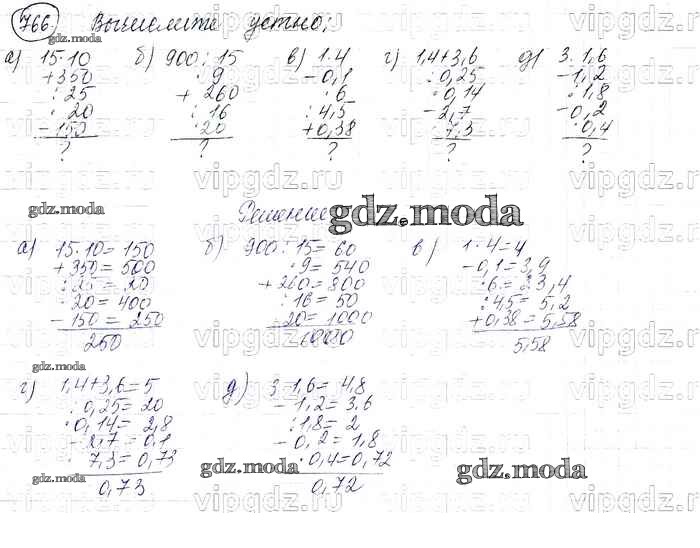 766. Вычислите устно:
а) 15·10 б) 900:15 в) 1·4 г) 1,4+3,6 д) 3·1,6
+350 ·9 -0,1 :0,25 -1,2
:25 +260 ·6 ·0,14 :1,8
·20 :16 :4,5 -2,7 -0,2
-150 ·20 +0,38 ·7,3 ·0,4
? ? ? ? ?
Решение
а) 15·10=150 б) 900:15=60 в) 1·4=4
+350=500 ·9=540 -0,1=3,9
:25=20 +260=800 ·6=23,4
·20=400 :16=50 :4,5=5,2
-150=250 ·20=1000 +0,38=5,58
250 1000 5,58
г) 1,4+3,6=5 д) 3·1,6=4,8
:0,25=20 -1,2=3,6
·0,14=2,8 :1,8=2
-2,7=0,1 -0,2=1,8
·7,3=0,73 ·0,4=0,72
0,73 0,72
gdz.moda
vipgdz.ru